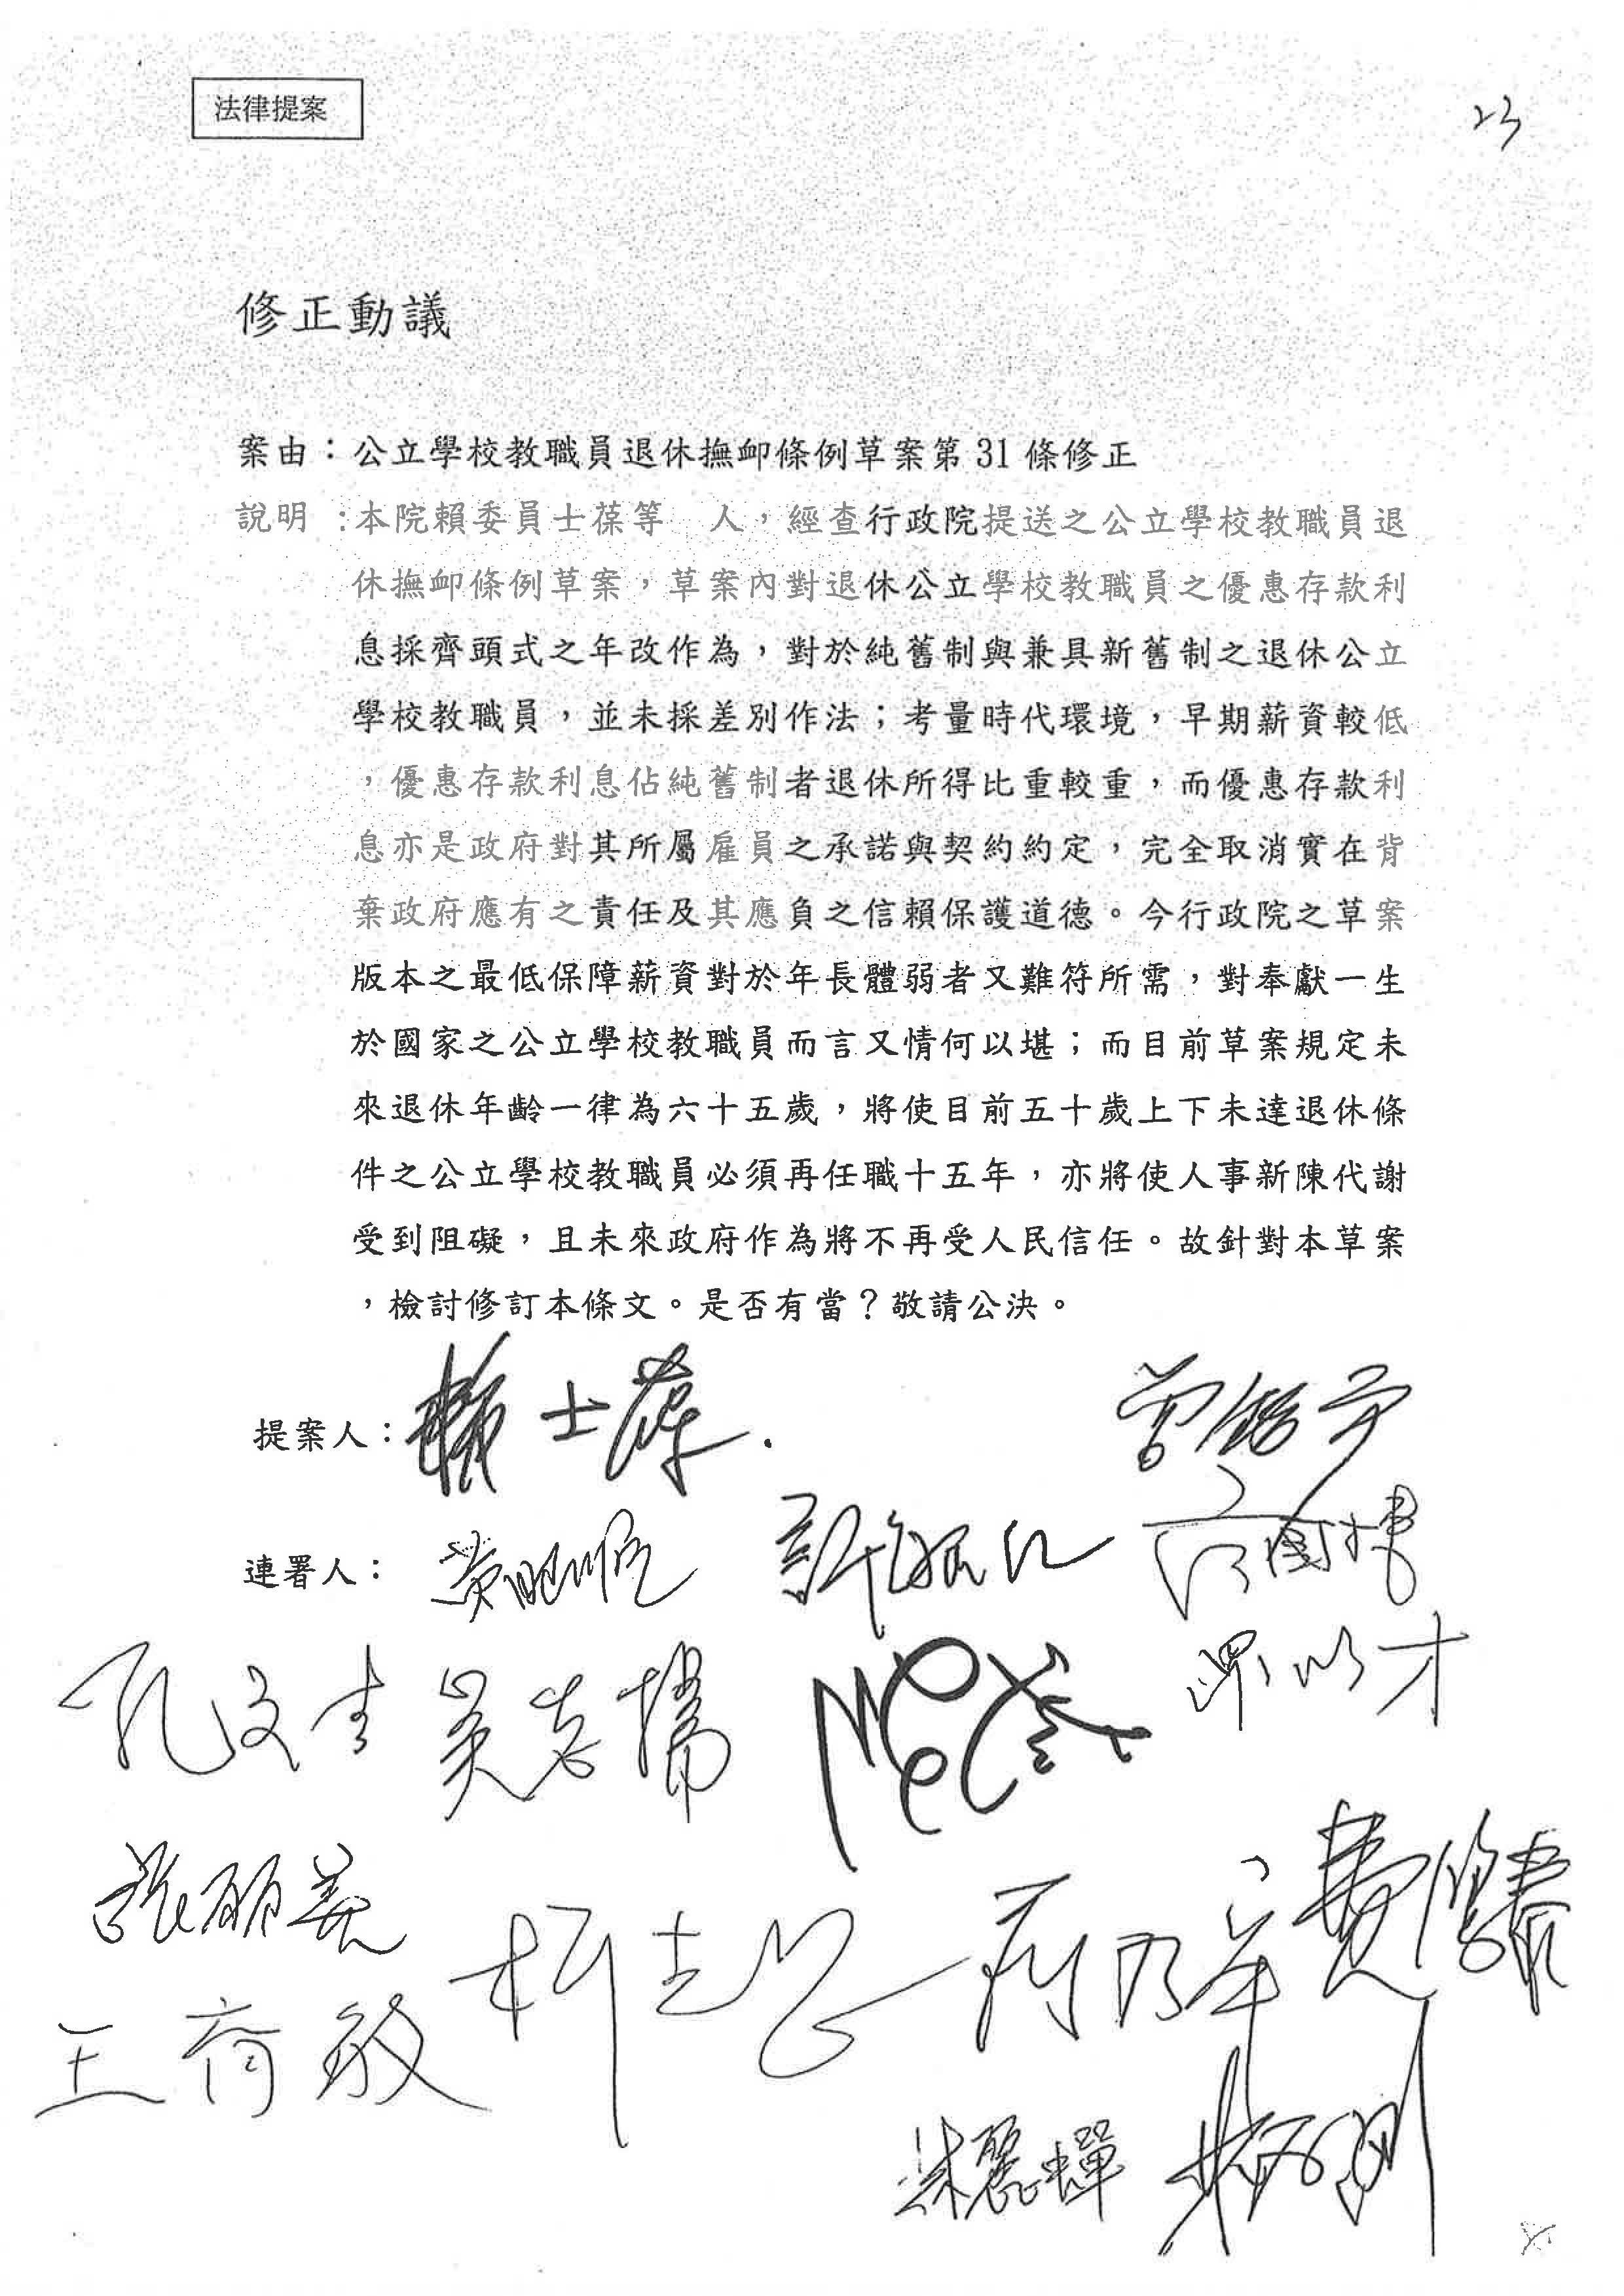 法律提案
23
修正動議
案由：公立學校教職員退休撫卹條例草案第 31 條修正
說明：本院賴委員士葆等　人，經查行政院提送之公立學校教職員退
休撫卹條例草案，草案內對退休公立學校教職員之優惠存款利
息採齊頭式之年改作為，對於純舊制與兼具新舊制之退休公立
學校教職員，並未採差別作法；考量時代環境，早期薪資較低
，優惠存款利息佔純舊制者退休所得比重較重，而優惠存款利
息亦是政府對其所屬雇員之承諾與契約約定，完全取消實在背
棄政府應有之責任及其應負之信賴保護道德。今行政院之草案
版本之最低保障薪資對於年長體弱者又難符所需，對奉獻一生
於國家之公立學校教職員而言又情何以堪；而目前草案規定未
來退休年齡一律為六十五歲，將使目前五十歲上下未達退休條
件之公立學校教職員必須再任職十五年，亦將使人事新陳代謝
受到阻礙，且未來政府作為將不再受人民信任。故針對本草案
，檢討修訂本條文。是否有當？敬請公決。
提案人：賴士葆
曾銘宗
連署人：黃昭順 許毓仁 江啟臣
孔文吉 吳志揚
張麗善 柯志恩 蔣乃辛 費鴻泰
王育敏
林麗蟬